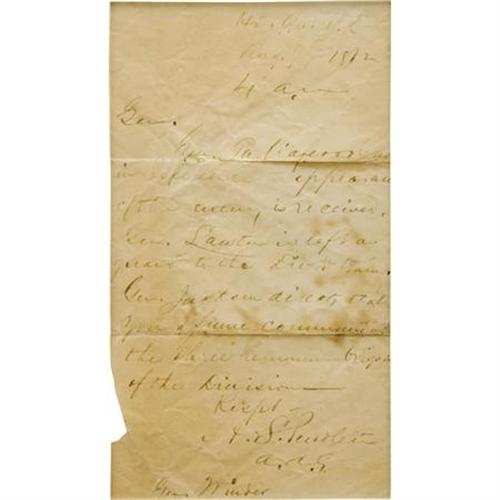 Hd. Qrs. V. D.
Aug 1862
4 a.m
Gen.
Your
in reference appearan
of the enemy, is received.
Gen. Lawton is left a
guard to the Div's train.
Gen. Jackson directs that
you assume command
the three remain brigad
of the Division—
Respt
A. S. Pendleton
A. A. G.
Gen. Winder